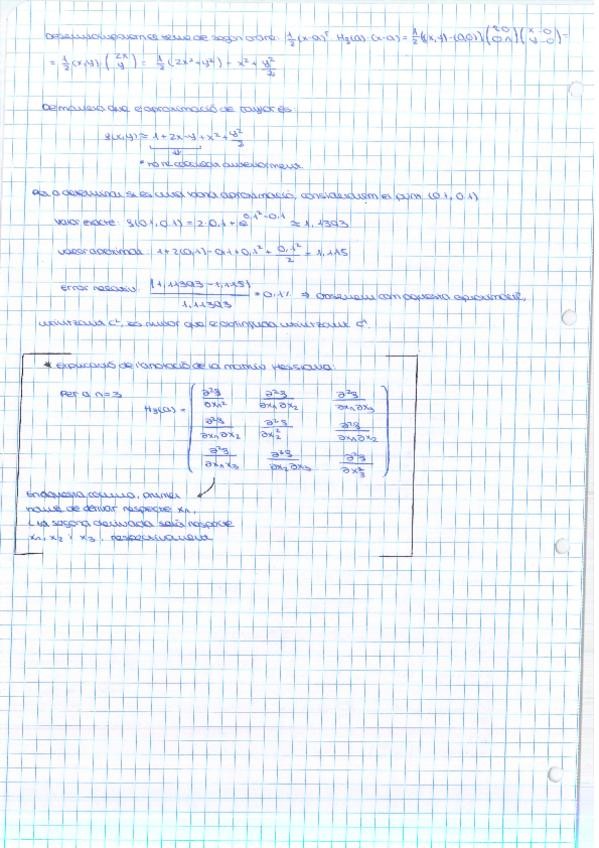 Desenvolupament el terme de segon ordre: 1/2 (x-a)ᵀ Hg(a) (x-a) = 1/2 ((x,y)-(0,0)) (2 0 / 0 1) (x-0 / y-0) =
= 1/2 (x,y) · (2x / y) = 1/2 (2x²+y²) = x² + y²/2
que l'aproximació de Taylor és:
g(x,y) ≈ 1+2x-y+x²+y²/2
* ho he calculat anteriorment
Per a determinar si és una bona aproximació, considerarem el punt (0.1, 0.1)
Valor exacte: g(0.1, 0.1) = 2·0.1 + e^(0.1²-0.1) ≈ 1,11393
Valor aproximat: 1+2(0.1)-0.1+0.1²+0.1²/2 = 1,115
Error relatiu: |1,11393-1,115| / 1,11393 = 0,1% ⇒ observem com aquesta aproximació,
utilitzant C², és millor que l'obtinguda utilitzant C¹.
* Explicació de l'anotació de la matriu Hessiana:
Per a n=3
Hg(a) = ( ∂²g/∂x₁² ∂²g/∂x₁∂x₂ ∂²g/∂x₁∂x₃
∂²g/∂x₁∂x₂ ∂²g/∂x₂² ∂²g/∂x₁∂x₂
∂²g/∂x₁x₃ ∂²g/∂x₂∂x₃ ∂²g/∂x₃² )
En aquesta columna, primer
hauré de derivar respecte x₁,
i la segona derivada serà respecte
x₁, x₂ i x₃, respectivament